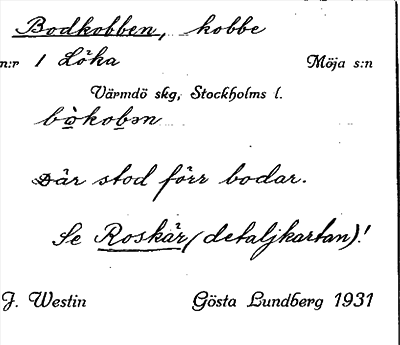 Bodkobben, kobbe
n:r 1 Löka Möja s:n
Värmdö skg, Stockholms l.
bòkobən
Där stod förr bodar.
Se Roskär (detaljkartan)!
J. Westin Gösta Lundberg 1931